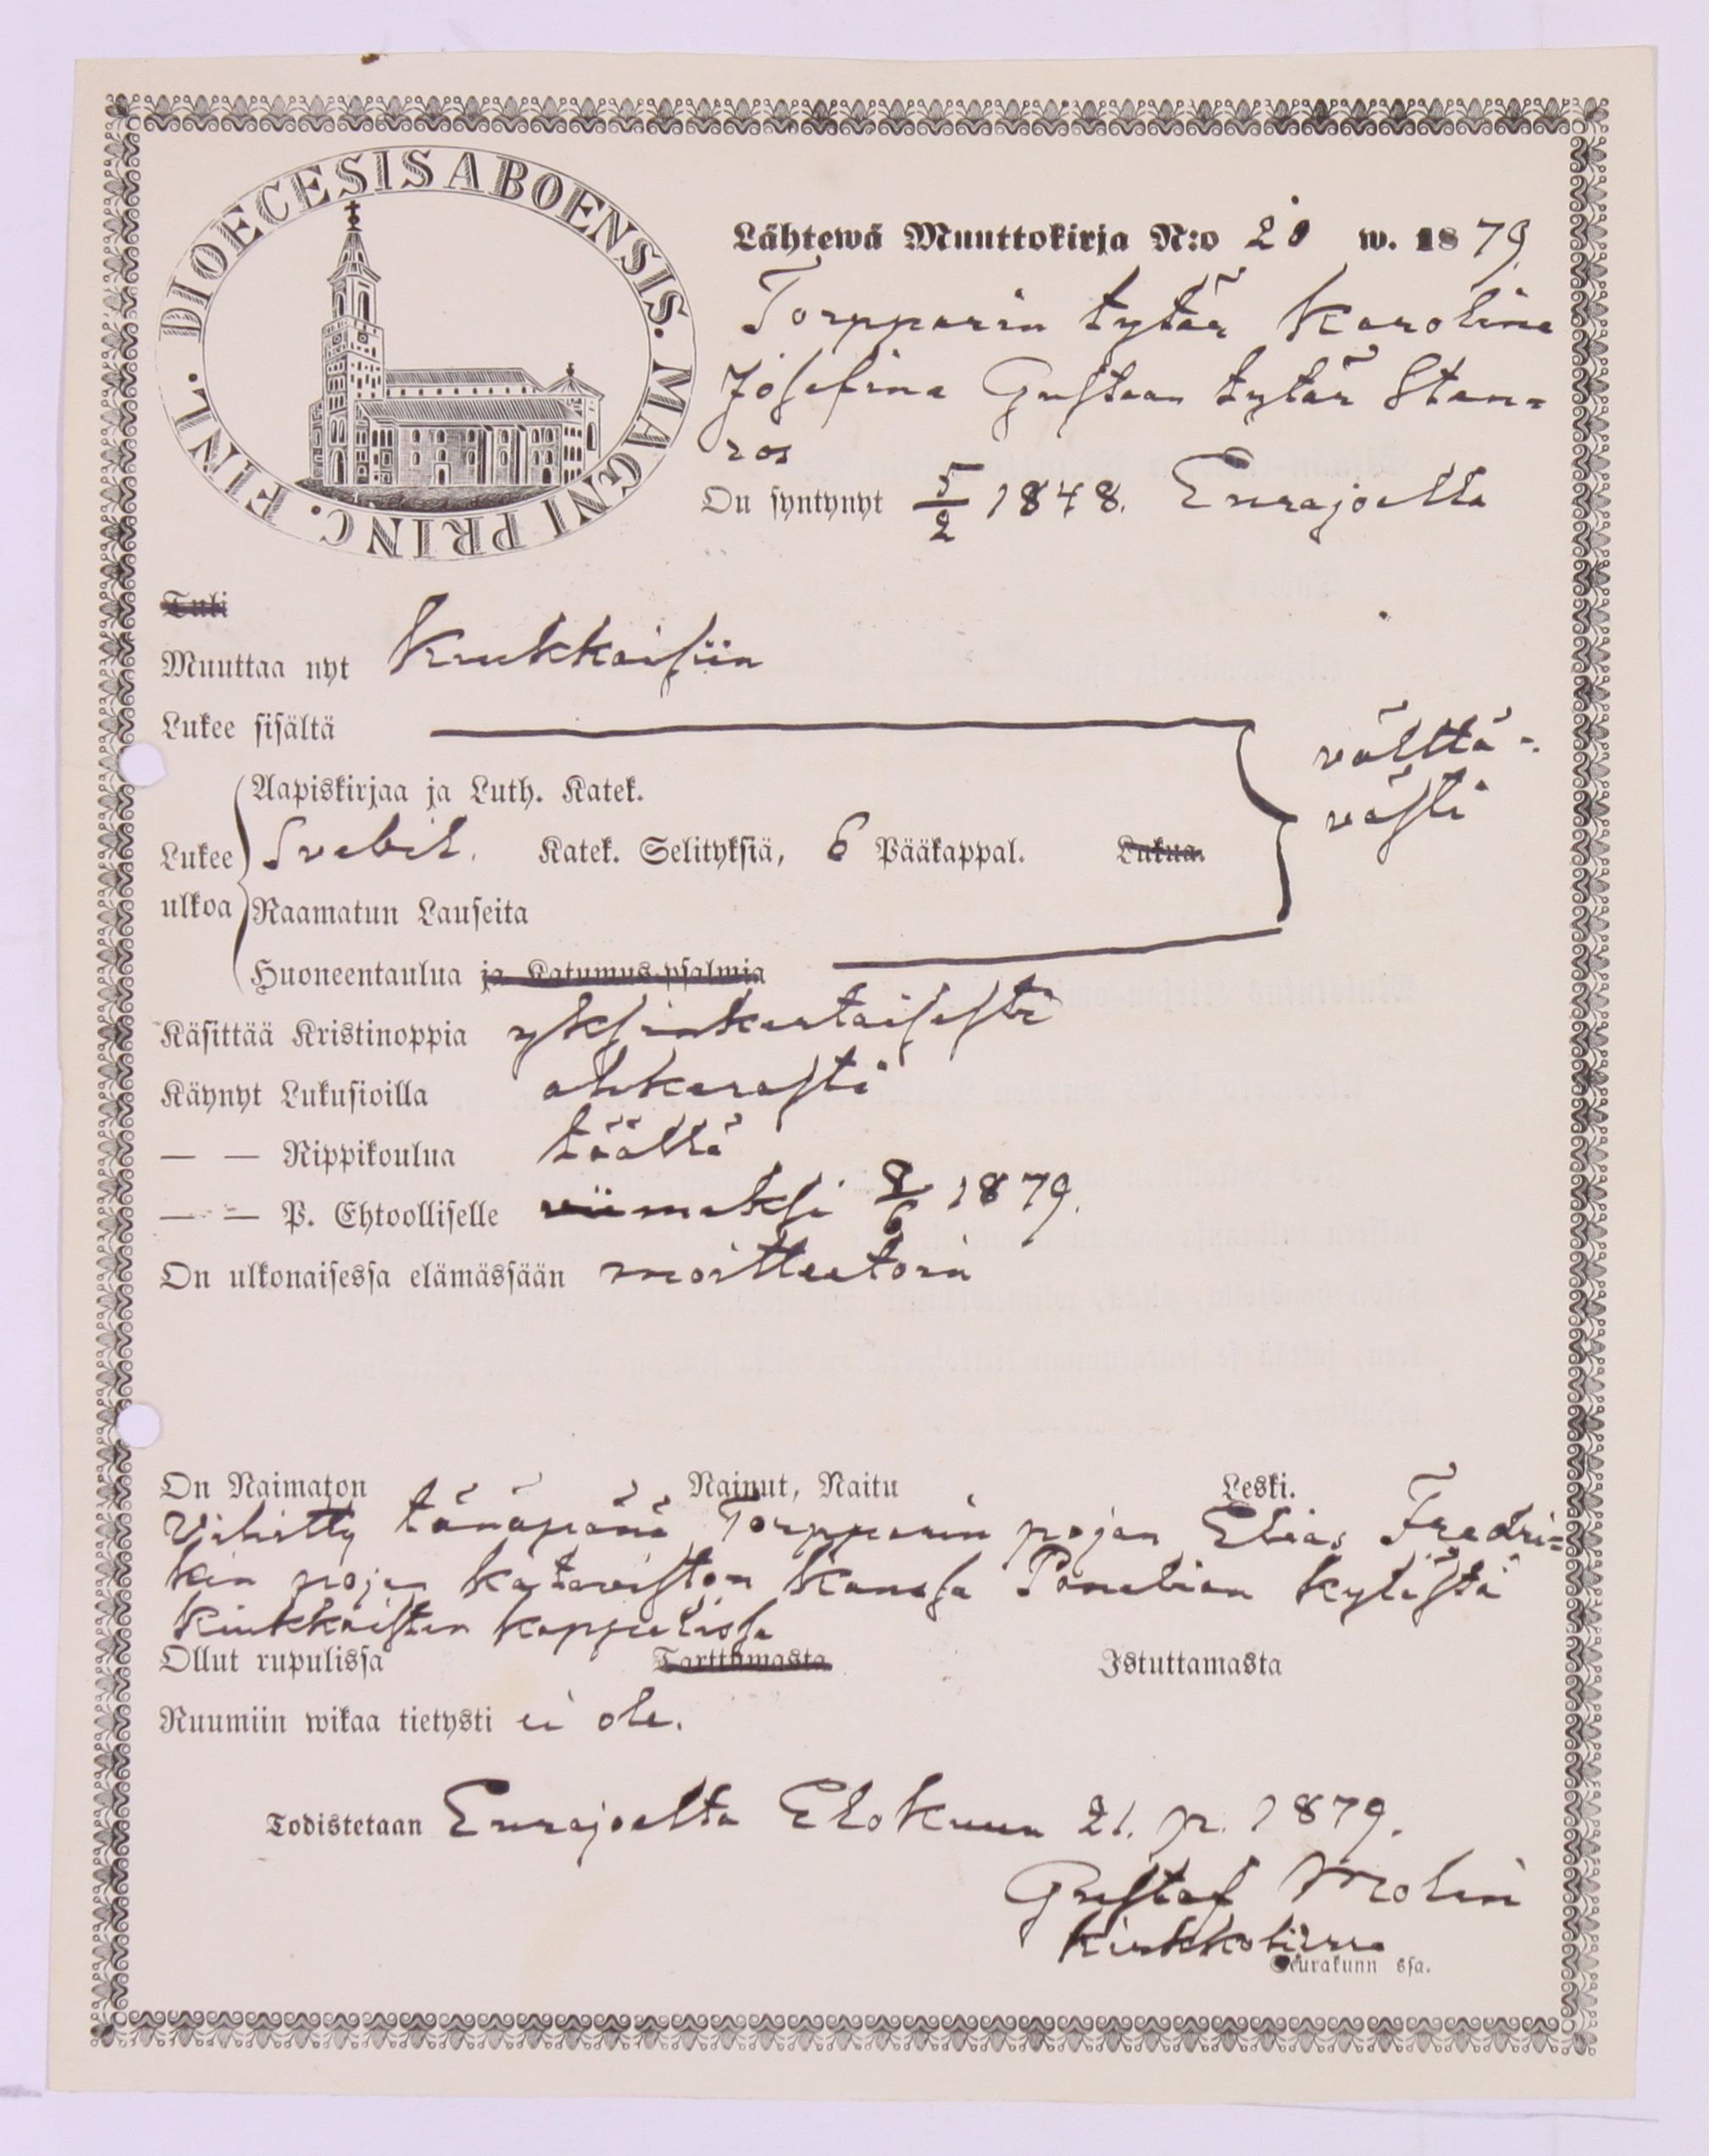 DIOECESIS ABOENSIS. MAGNI PRINC. FINL.
Lähtewä Muuttokirja N:o 20 w. 1879.
Torpparin tytär Karolina
Josefina Gustaan tytär Stan=
ros
On syntynyt 5/2 1848. Eurajoella
Tuli
Muuttaa nyt Kiukkaisiin
Lukee sisältä
välttä-
västi
Aapiskirjaa ja Luth. Katek.
Lukee Svebil. Katek. Selityksiä, 6 Pääkappal. Lukua.
ulkoa Raamatun Lauseita
Huoneentaulua ja Katumus-psalmia
Käsittää Kristinoppia yksinkertaisesti
Käynyt Lukusioilla ahkerasti
— — Rippikoulua täällä
— — P. Ehtoolliselle viimeksi 8/6 1879.
On ulkonaisessa elämässään moitteetoin
On Naimaton Nainut, Naitu Leski.
Vihitty tänäpänä Torpparin pojan Elias Fredri=
kin pojan Katawiston kanssa Panelian kylästä
Kiukkaisten kappelissa
Ollut rupulissa Tarttumasta Istuttamasta
Ruumiin wikaa tietysti ei ole.
Todistetaan Eurajoella Elokuun 21. p. 1879.
Gustaf Molin
Kirkkoherra
Seurakunn ssa.